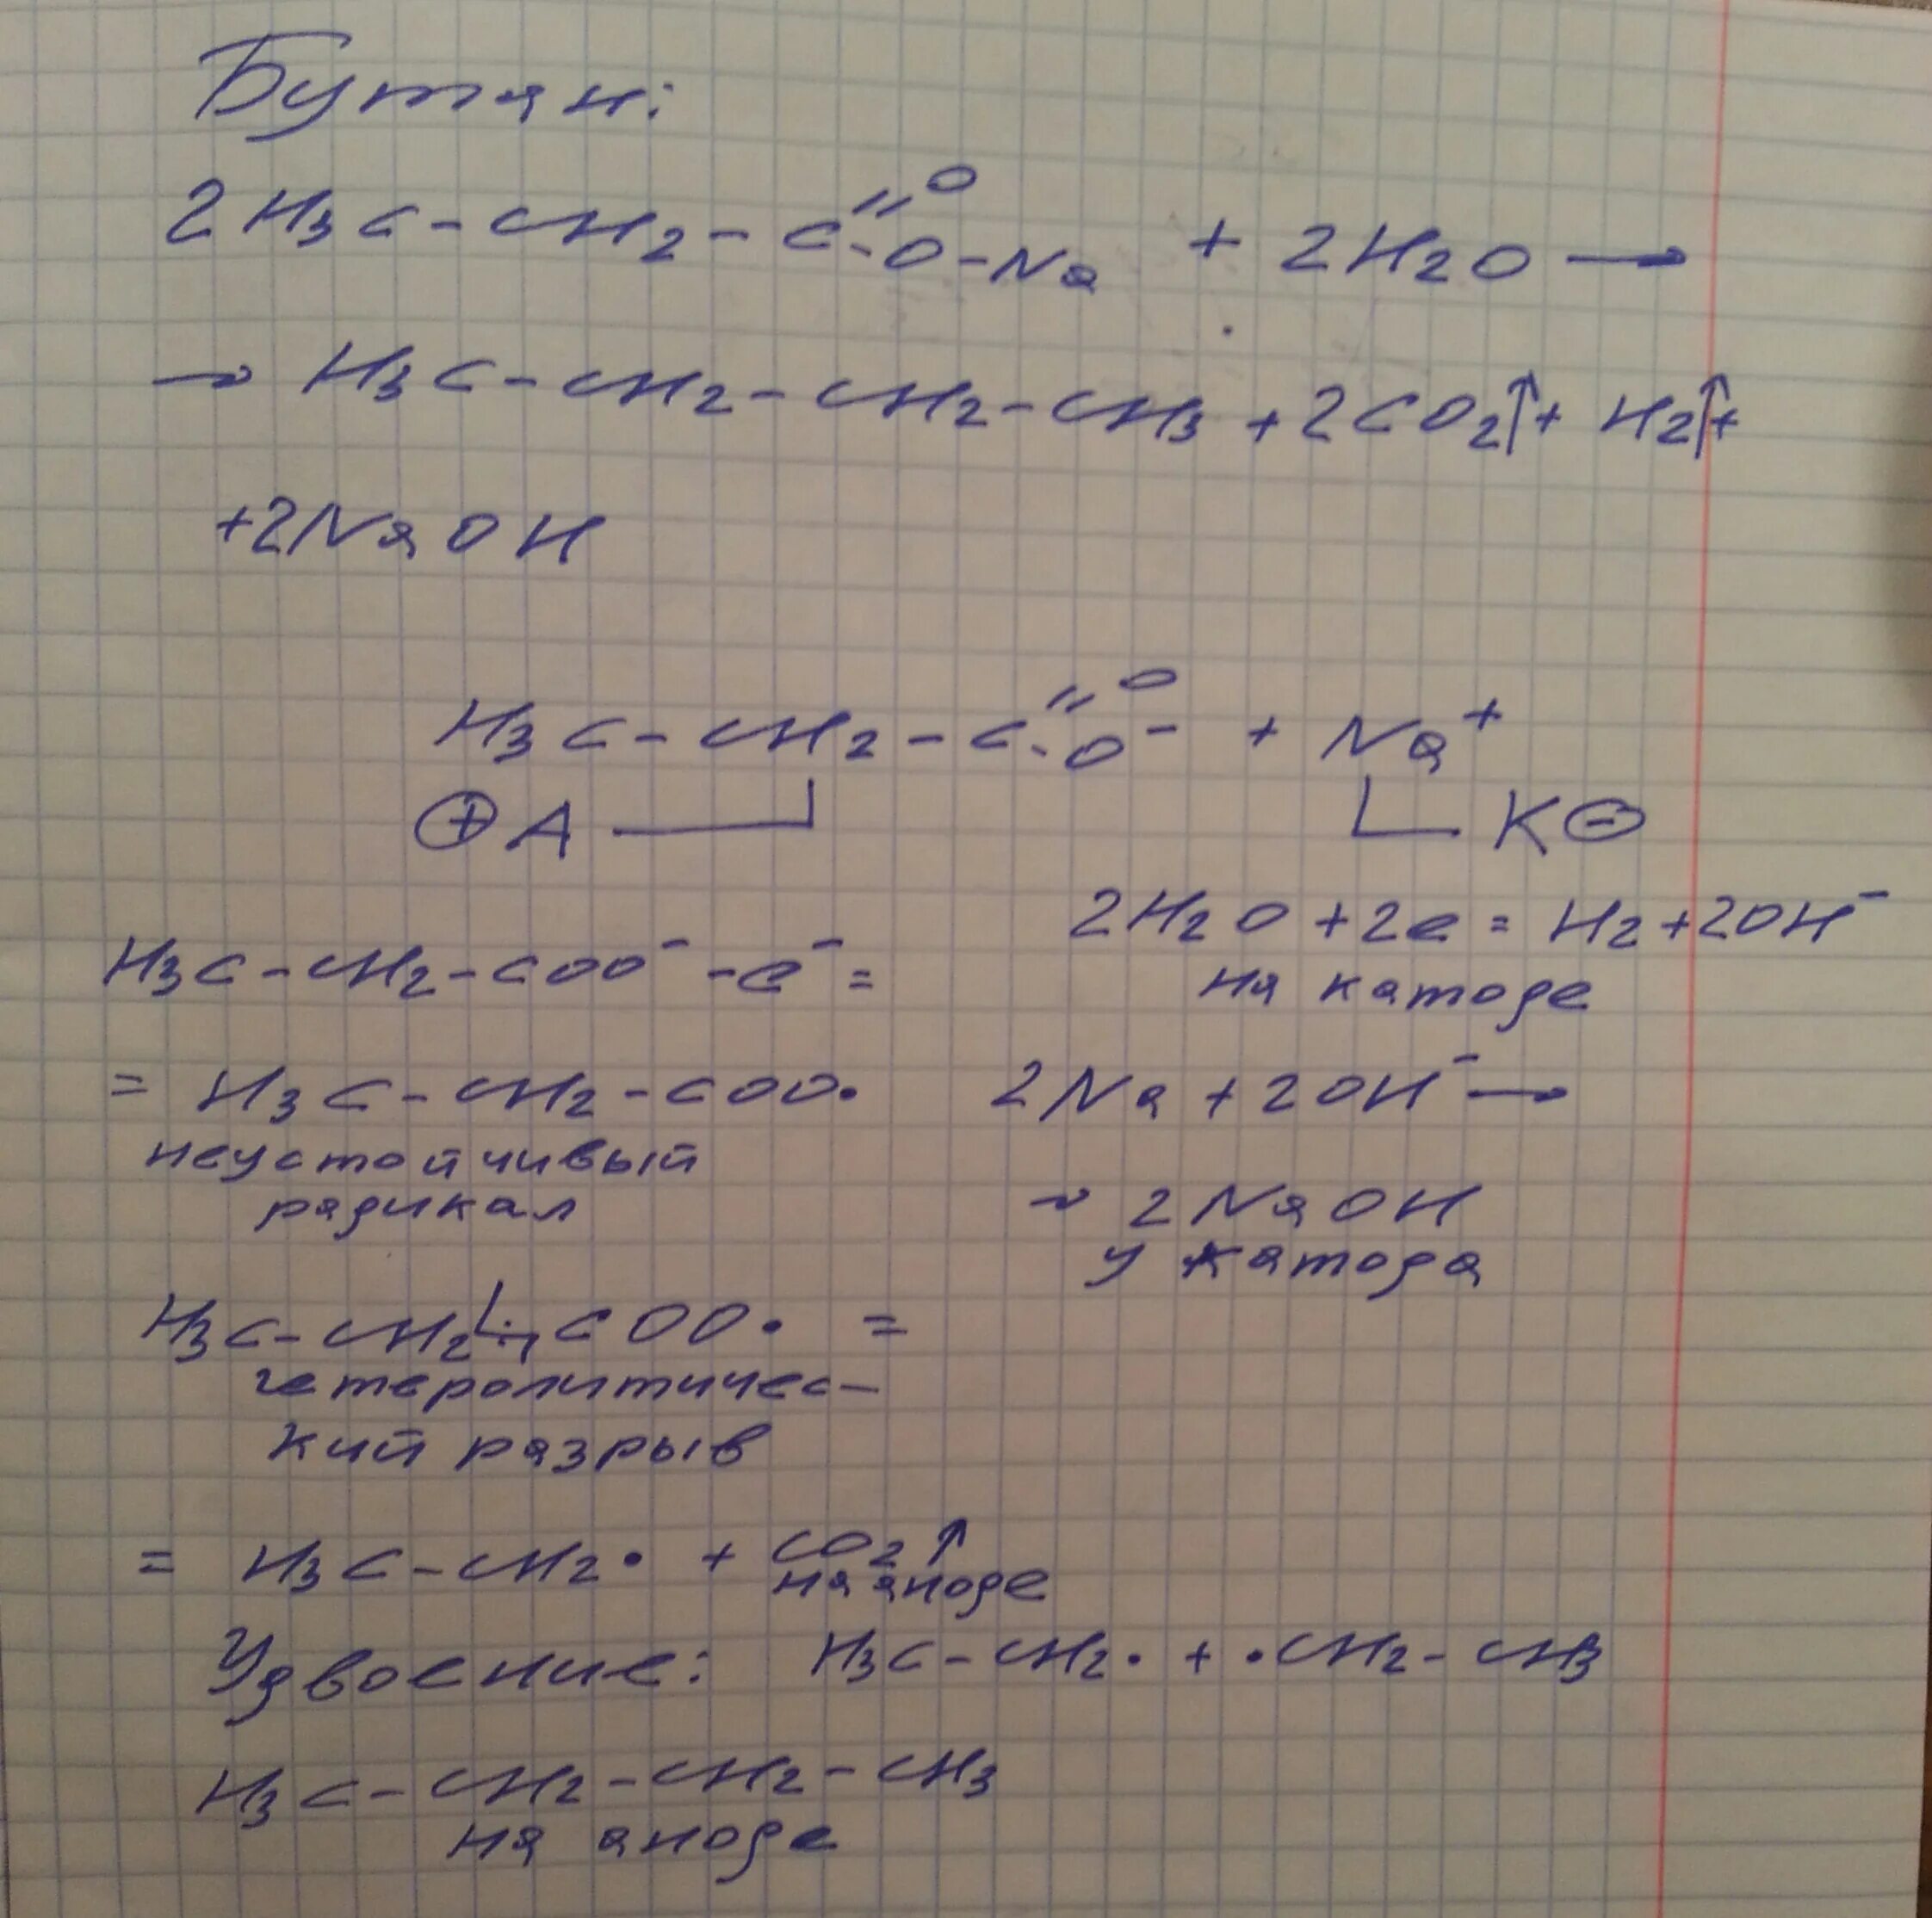 Бутан:
2H₃C-CH₂-C=O-O-Na + 2H₂O →
→ H₃C-CH₂-CH₂-CH₃ + 2CO₂↑ + H₂↑ +
+2NaOH
H₃C-CH₂-C=O-O⁻ + Na⁺
⊕ A K ⊖
2H₂O + 2e = H₂ + 2OH⁻
на катоде
H₃C-CH₂-COO⁻ - e⁻ =
= H₃C-CH₂-COO•
неустойчивый
радикал
2Na + 2OH⁻ →
→ 2NaOH
у катода
H₃C-CH₂ : COO• =
гетеролитичес-
кий разрыв
= H₃C-CH₂• + CO₂↑
на аноде
Удвоение: H₃C-CH₂• + •CH₂-CH₃
H₃C-CH₂-CH₂-CH₃
на аноде